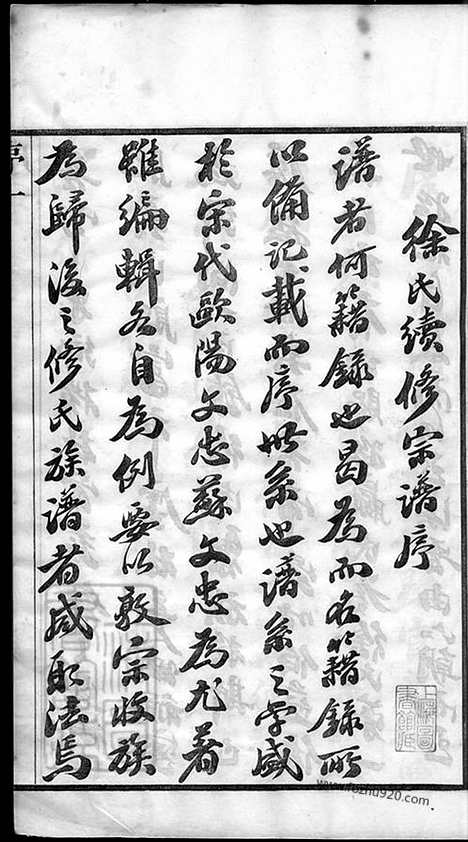 徐氏續修宗譜序
譜者何籍錄也曷為而名籍錄所
以備記載而序世系也譜系之學盛
於宋代歐陽文忠蘇文忠為尤著
雖編輯各自為例要以敦宗收族
為歸後之修氏族譜者咸取法焉
序 一
上海圖書館藏
www.jiazhu920.com